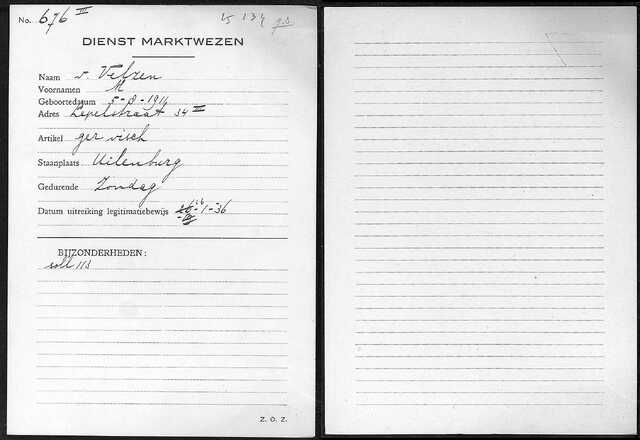 No. 676 III
DIENST MARKTWEZEN
Naam v. Velzen
Voornamen M
Geboortedatum 5-9-1914
Adres Lepelstraat 34 II
Artikel ger visch
Staanplaats Uilenburg
Gedurende Zondag
Datum uitreiking legitimatiebewijs -1-36
BIJZONDERHEDEN:
Z. O. Z.